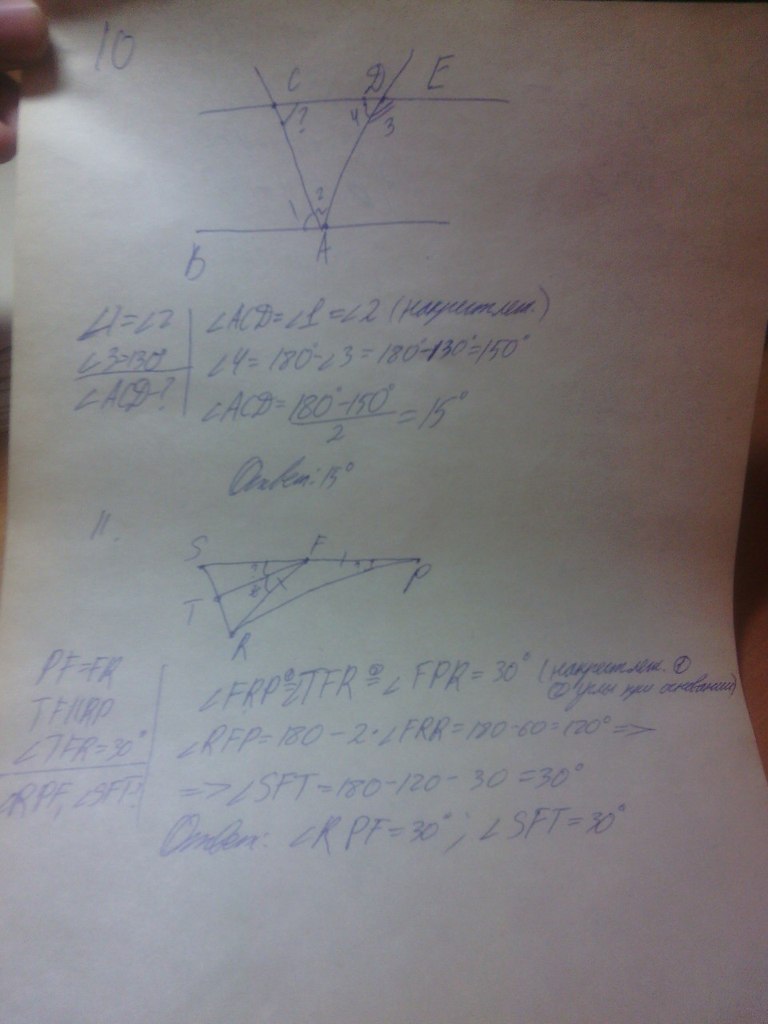 10
C D E
? 4 3
1 2
B A
∠1=∠2
∠3=130°
∠ACD-?
∠ACD=∠1=∠2 (накрест леж.)
∠4=180°-∠3=180°-130°=150°
∠ACD=\frac{180°-150°}{2}=15°
Ответ: 15°
11.
S F P
T
R
PF=FR
TF||RP
∠TFR=30°
∠RPF, ∠SFT-?
∠FRP ①= ∠TFR ②= ∠FPR=30° (накрест леж. ①
② углы при основании)
∠RFP=180-2·∠FRP=180-60=120° =>
=> ∠SFT=180-120-30=30°
Ответ: ∠RPF=30°; ∠SFT=30°